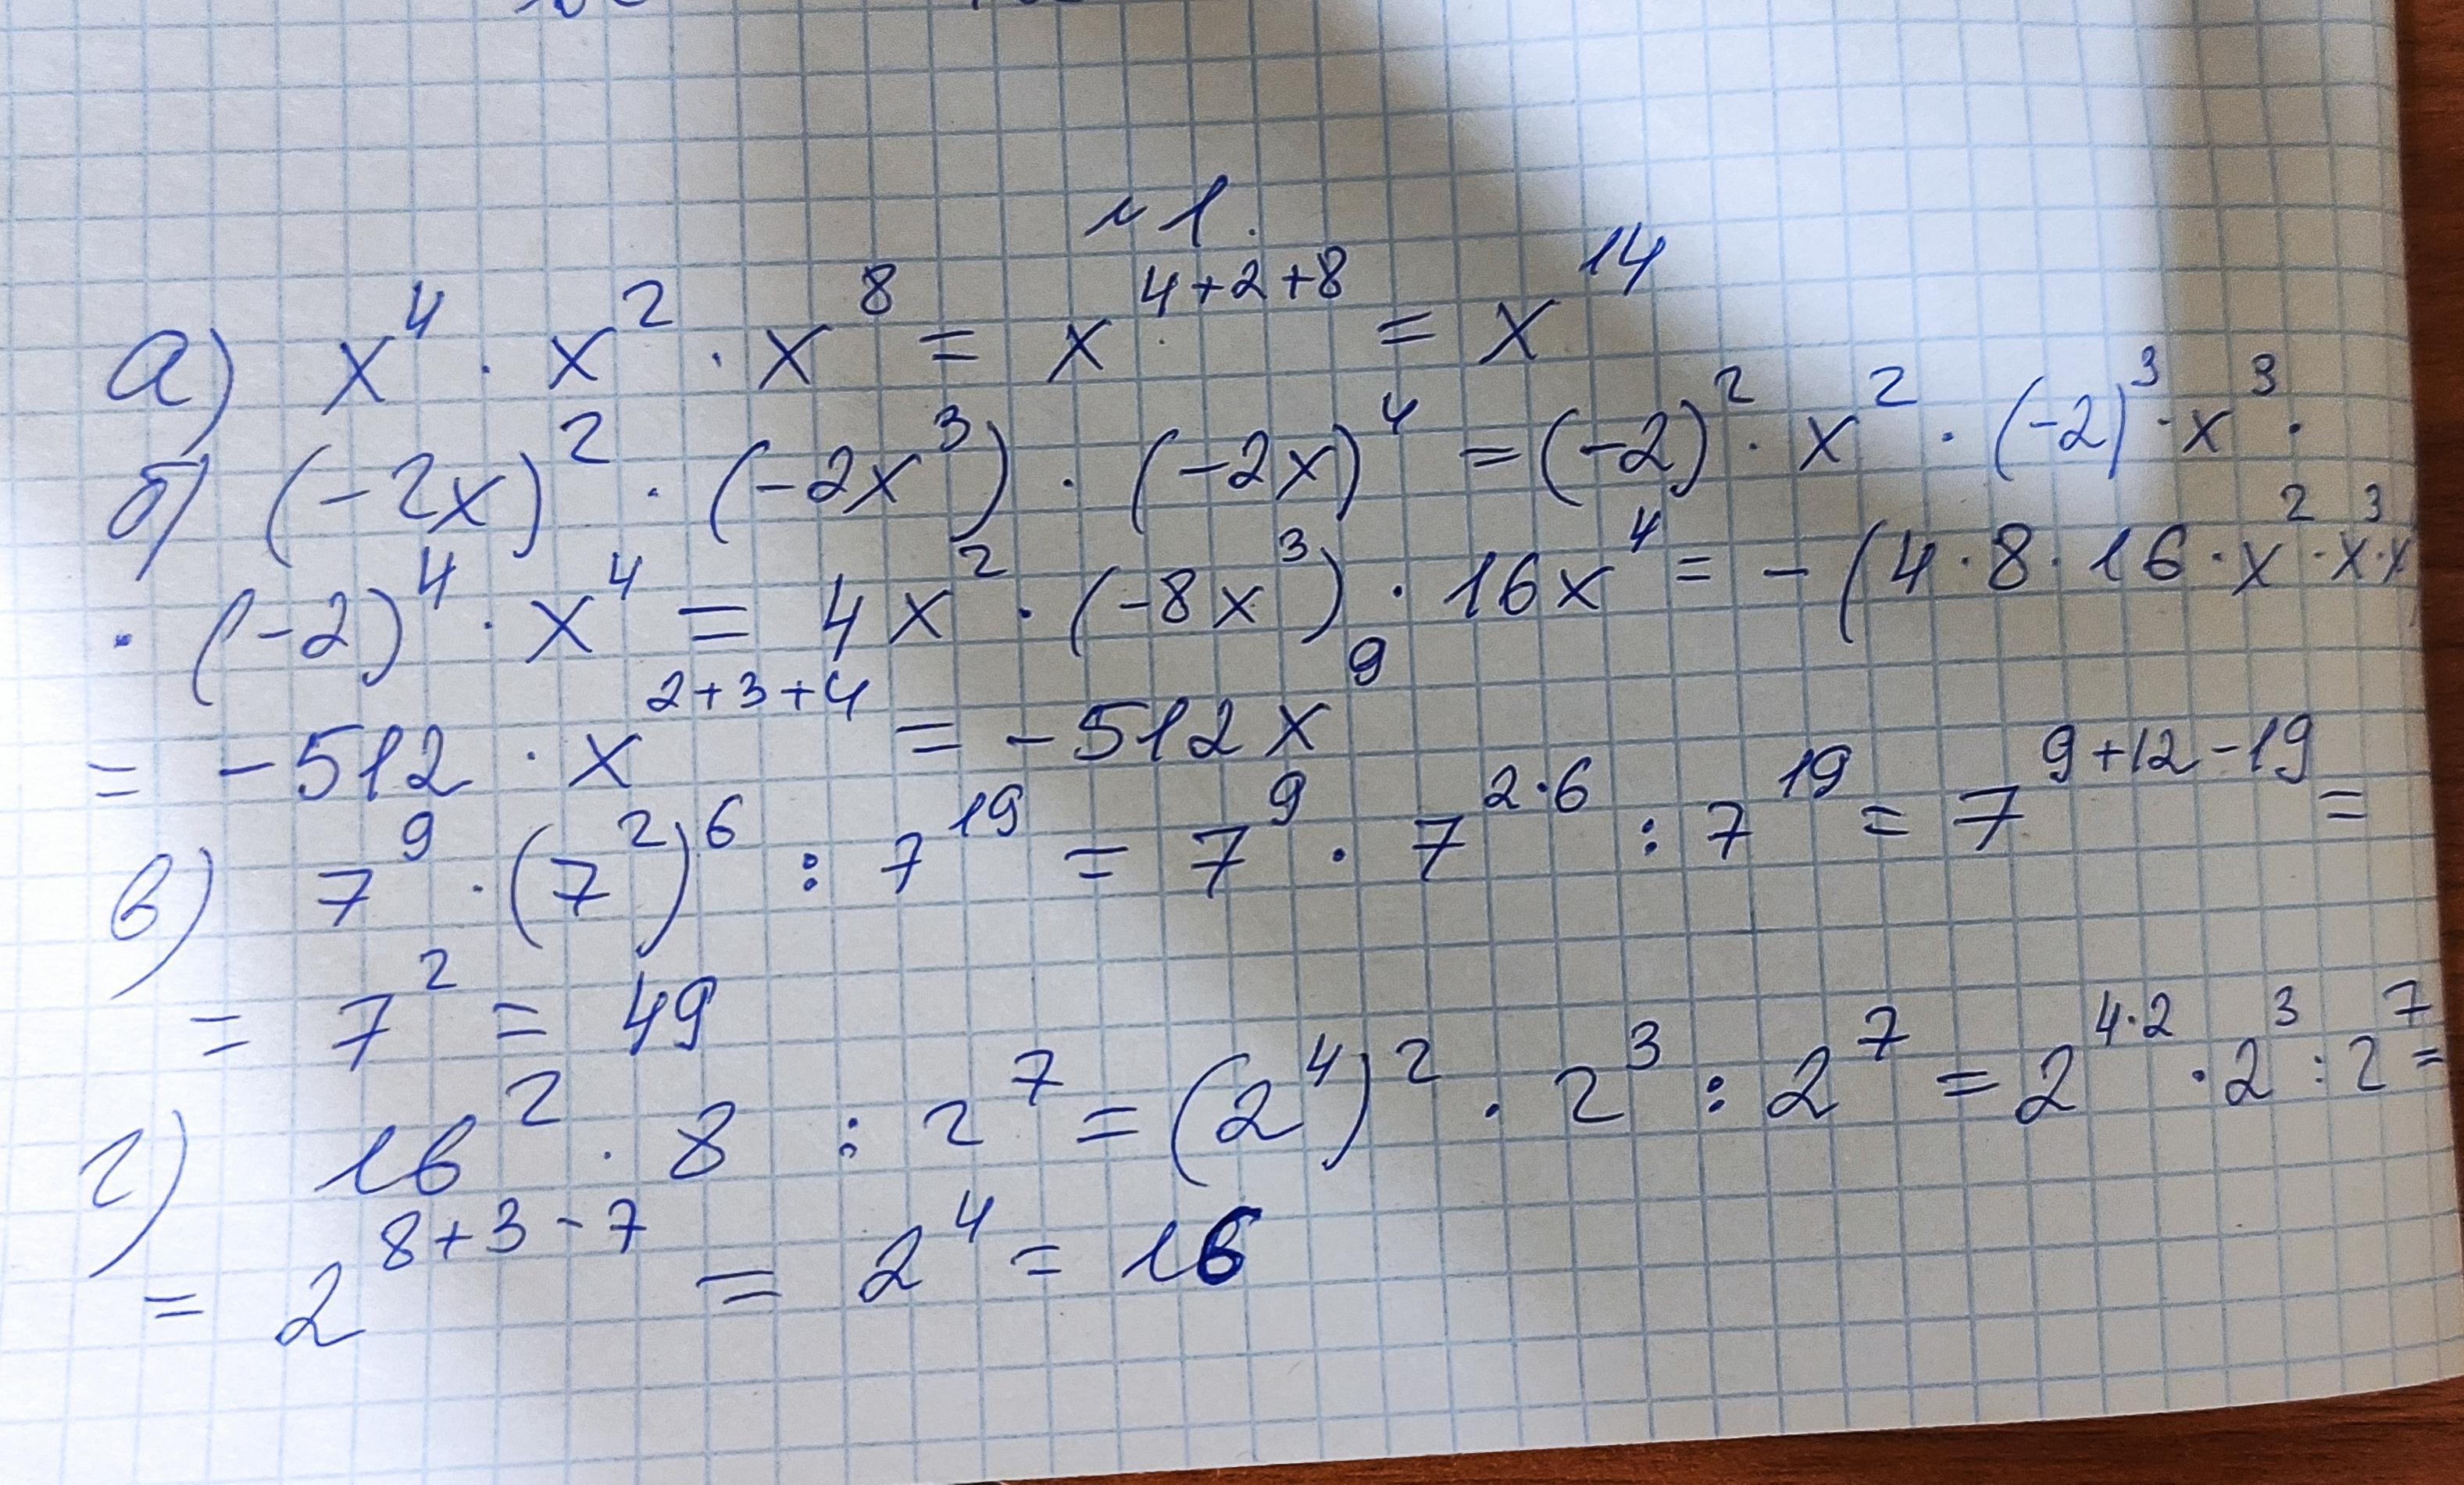 №1.
а) x⁴ · x² · x⁸ = x⁴⁺²⁺⁸ = x¹⁴
б) (-2x)² · (-2x³) · (-2x)⁴ = (-2)² · x² · (-2)³ · x³ ·
· (-2)⁴ · x⁴ = 4x² · (-8x³) · 16x⁴ = - (4 · 8 · 16 · x² · x³ · x
= -512 · x²⁺³⁺⁴ = -512x⁹
в) 7⁹ · (7²)⁶ : 7¹⁹ = 7⁹ · 7²˙⁶ : 7¹⁹ = 7⁹⁺¹²⁻¹⁹ =
= 7² = 49
г) 16² · 8 : 2⁷ = (2⁴)² · 2³ : 2⁷ = 2⁴˙² · 2³ : 2⁷ =
= 2⁸⁺³⁻⁷ = 2⁴ = 16